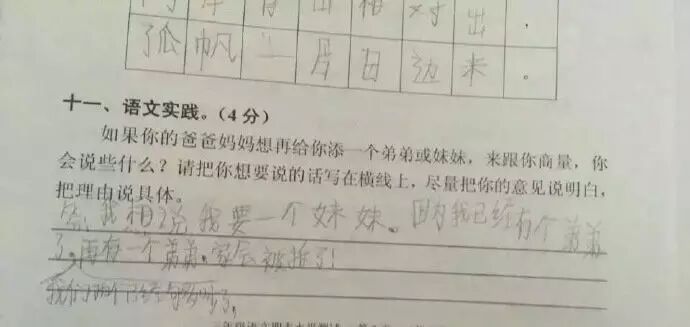 出
孤帆一片日边来。
十一、语文实践。（4分）
如果你的爸爸妈妈想再给你添一个弟弟或妹妹，来跟你商量，你
会说些什么？请把你想要说的话写在横线上，尽量把你的意见说明白，
把理由说具体。
答我想说我要一个妹妹。因为我已经有个弟弟
了。再有一个弟弟，家会被拆了！
我们两个已经够吵了，